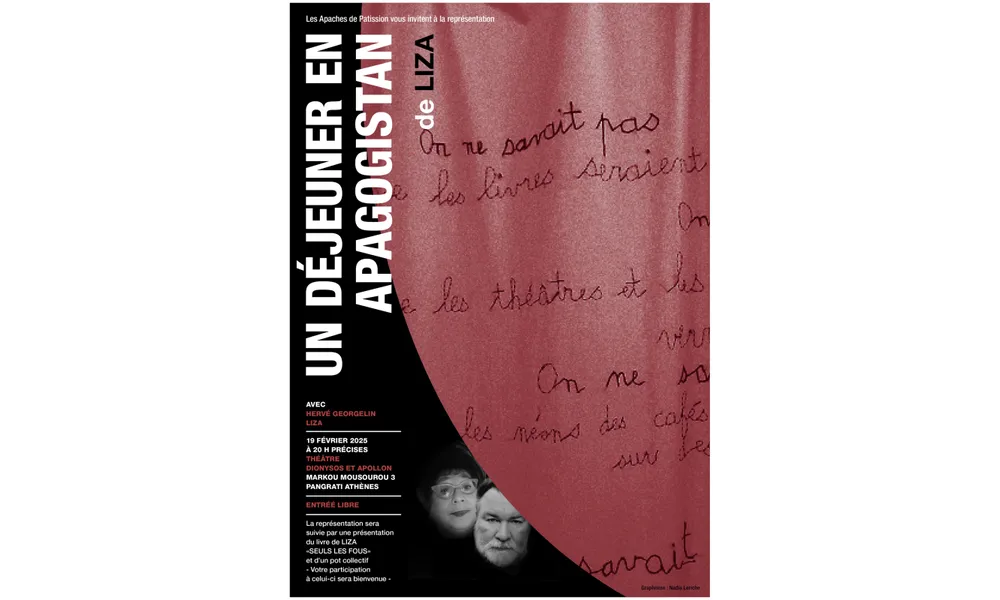 Les Apaches de Patission vous invitent à la représentation
UN DÉJEUNER EN
APAGOGISTAN
de LIZA
On ne savait pas
e les livres seraient
On
e les théâtres et les
verr
On ne sa
les néons des cafés
sur les
savait
AVEC
HERVÉ GEORGELIN
LIZA
19 FÉVRIER 2025
À 20 H PRÉCISES
THÉÂTRE
DIONYSOS ET APOLLON
MARKOU MOUSOUROU 3
PANGRATI ATHÈNES
ENTRÉÉ LIBRE
La représentation sera
suivie par une présentation
du livre de LIZA
«SEULS LES FOUS»
et d'un pot collectif
- Votre participation
à celui-ci sera bienvenue -